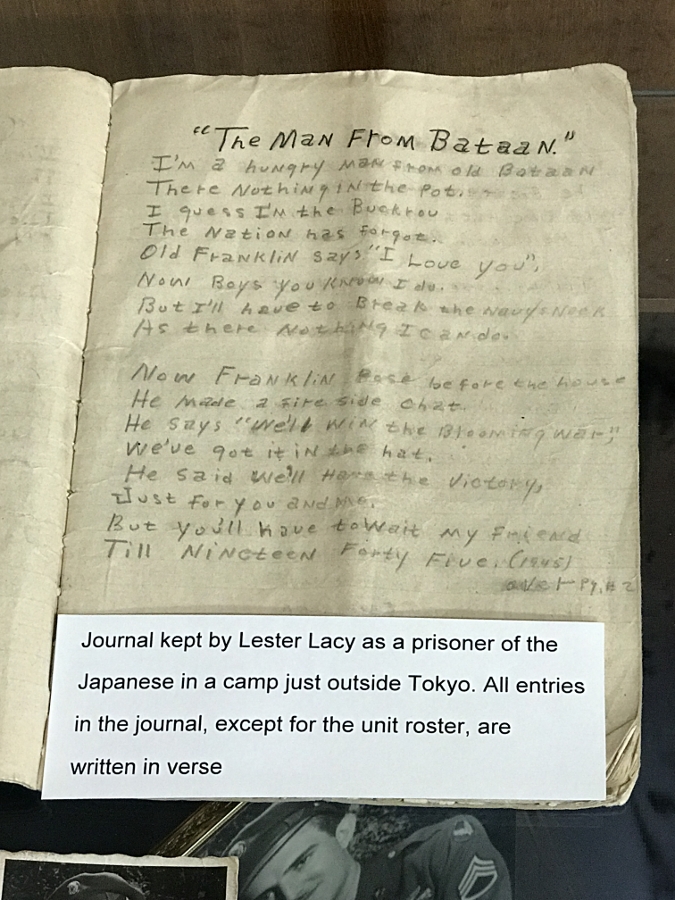 "The Man From Bataan."
I'm a hungry man from old Bataan
There Nothing in the pot.
I guess I'm the Buckrou
The Nation has forgot.
Old Franklin says "I Love you",
Now Boys you know I do.
But I'll have to Break the Navy's Neck
As there Nothing I can do.
Now Franklin Rose before the house
He made a fire side chat.
He says "We'll win the Blooming War,"
We've got it in the hat.
He said We'll Have the Victory,
Just for you and me.
But you'll have to Wait my Friend
Till Nineteen Forty Five. (1945)
over Pg. # 2
Journal kept by Lester Lacy as a prisoner of the
Japanese in a camp just outside Tokyo. All entries
in the journal, except for the unit roster, are
written in verse